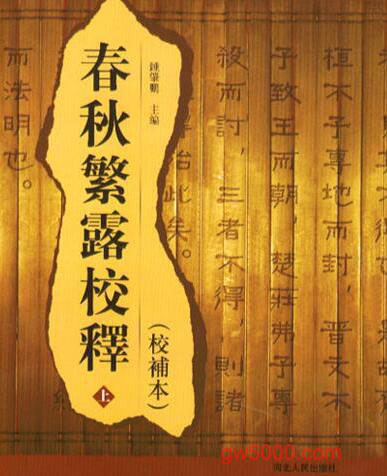 春秋繁露校釋
上
(校補本)
鍾肇鵬 主編
桓不予專地而封，晉文不
予致王而朝，楚莊弗予專
殺而討，三者不得，則諸
始此矣。
而法明也。
河北人民出版社
gw5000.com